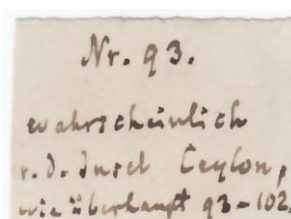 Nr. 93.
wahrscheinlich
v. d. Insel Ceylon,
wie überhaupt 93-102.